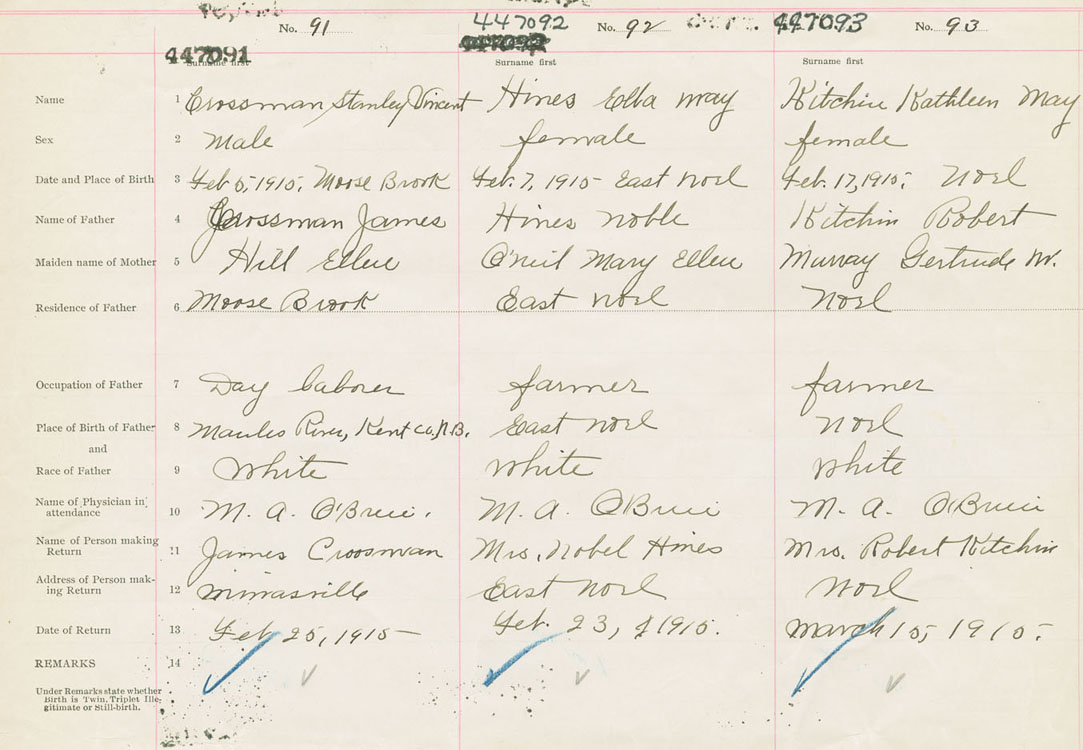 No. 91
447092 No. 92
447093 No. 93
447091
Surname first Surname first Surname first
Name 1 Crossman Stanley Vincent Hines Elba May Kitchin Kathleen May
Sex 2 Male female female
Date and Place of Birth 3 Feb 5, 1915, Moose Brook Feb. 7, 1915 East Noel Feb. 17, 1915, Noel
Name of Father 4 Crossman James Hines Noble Kitchin Robert
Maiden name of Mother 5 Hill Ellen O'neil Mary Ellen Murray Gertrude M.
Residence of Father 6 Moose Brook East Noel Noel
Occupation of Father 7 Day Laborer farmer farmer
Place of Birth of Father 8 River, Kent Co, N.B. East Noel Noel
and
Race of Father 9 White White White
Name of Physician in
attendance 10 M. A. O'Brien. M. A. O'Brien M. A. O'Brien
Name of Person making
Return 11 James Croosman Mrs. Nobel Hines Mrs. Robert Kitchin
Address of Person mak-
ing Return 12 Minasville East Noel Noel
Date of Return 13 Feb 25, 1915 Feb. 23, 1915. March 15, 1915.
REMARKS 14
Under Remarks state whether
Birth is Twin, Triplet Ille-
gitimate or Still-birth.